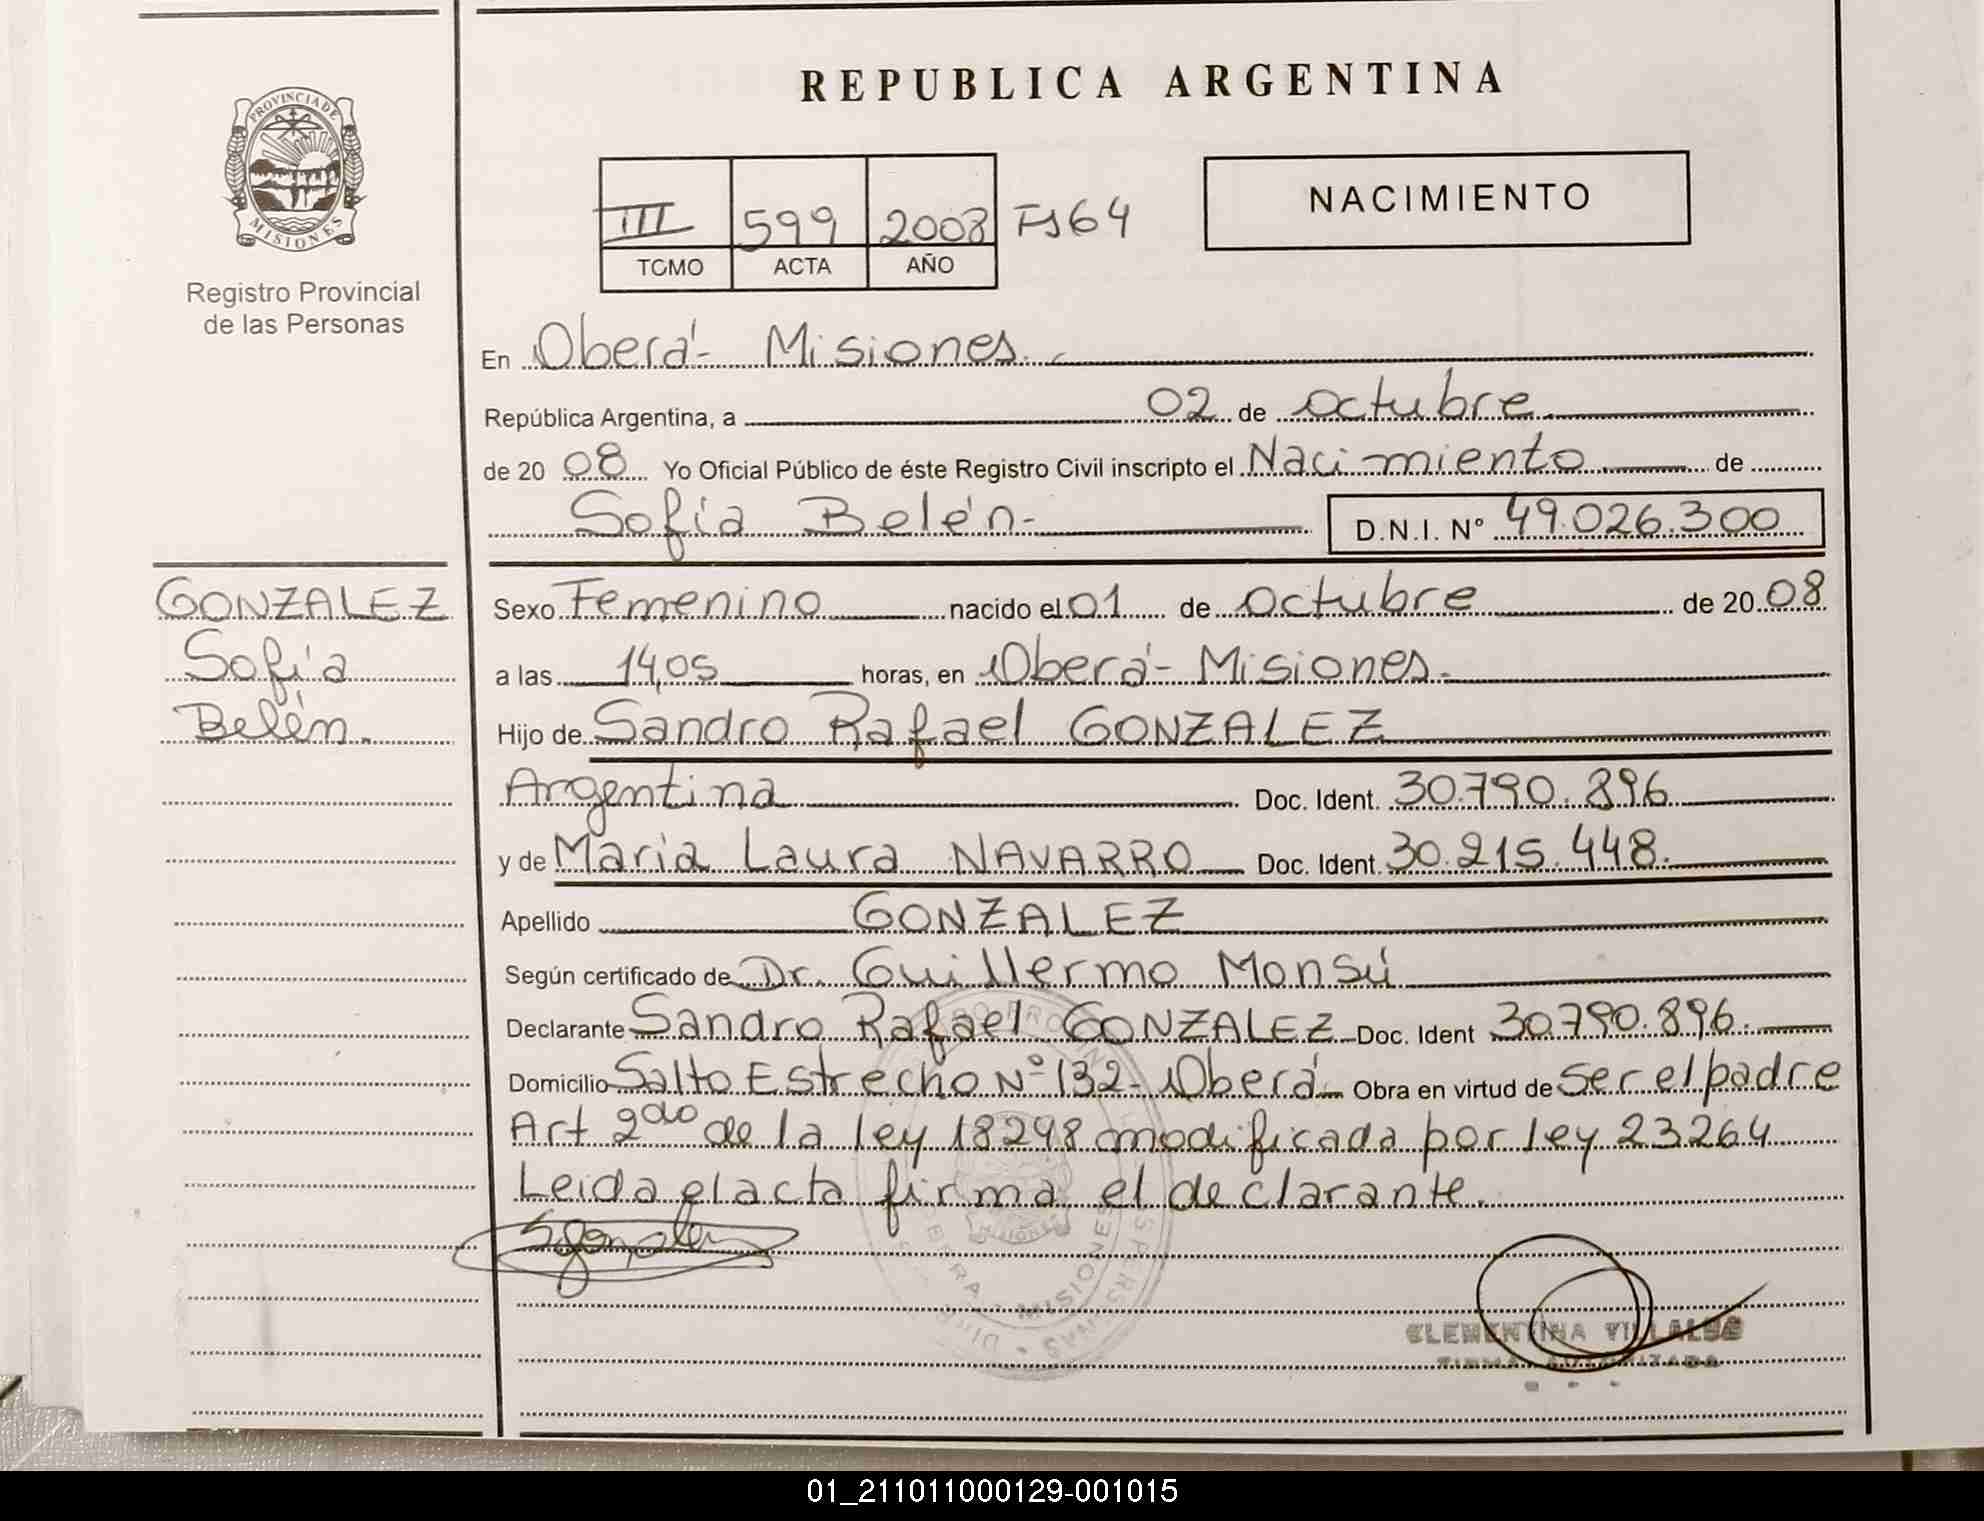 REPUBLICA ARGENTINA
PROVINCIA DE
MISIONES
Registro Provincial
de las Personas
III 599 2008 Fs 64
TOMO ACTA AÑO
NACIMIENTO
En Oberá - Misiones.
República Argentina, a 02 de octubre
de 20 08 Yo Oficial Público de éste Registro Civil inscripto el Nacimiento de
Sofía Belén.- D.N.I. Nº 49.026.300
GONZALEZ
Sofía
Belén.
Sexo Femenino nacido el 01 de octubre de 20 08
a las 14,05 horas, en Oberá - Misiones.
Hijo de Sandro Rafael GONZALEZ
Argentina Doc. Ident. 30.790.896
y de Maria Laura NAVARRO Doc. Ident. 30.215.448.
Apellido GONZALEZ
Según certificado de Dr. Guillermo Monsú
Declarante Sandro Rafael GONZALEZ Doc. Ident 30.790.896.
Domicilio Salto Estrecho Nº 132 - Oberá Obra en virtud de ser el padre
Art 2do de la ley 18248 modificada por ley 23264
Leida el acta firma el declarante.
CLEMENTINA VILLALBA
FIRMA AUTORIZADA
01_211011000129-001015